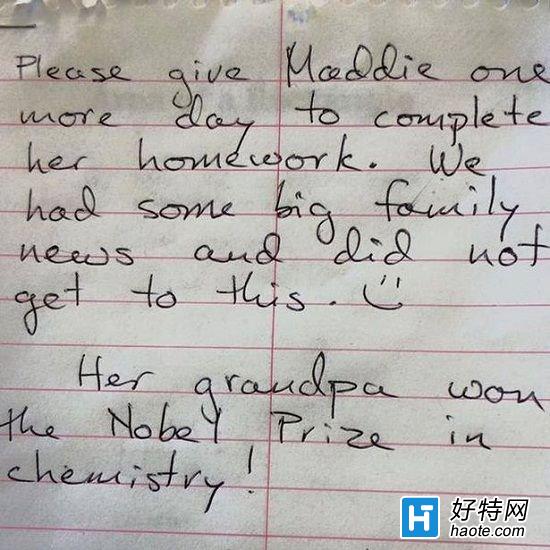 Please give Maddie one
more day to complete
her homework. We
had some big family
news and did not
get to this. :)
Her grandpa won
the Nobel Prize in
chemistry!
好特网
haote.com